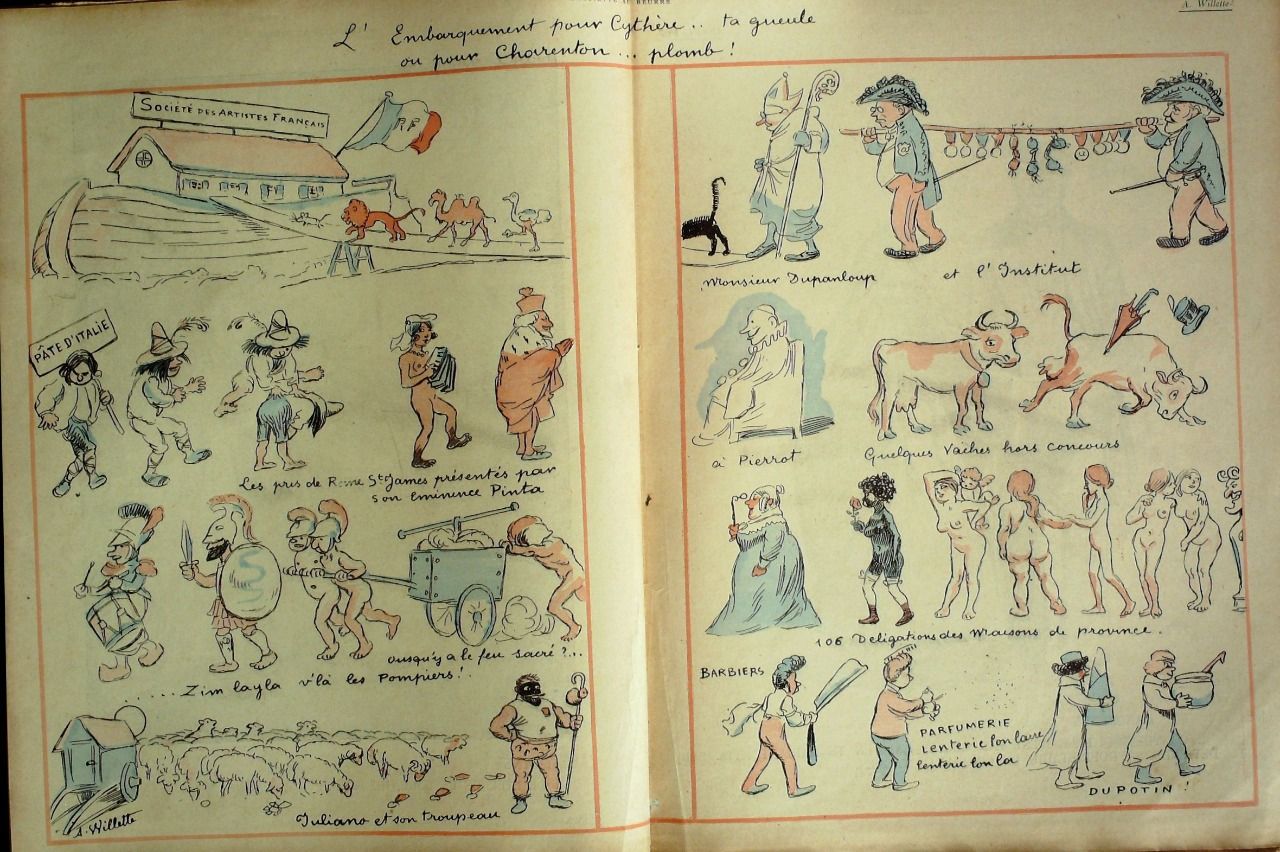 AU BEURRE
A. Willette
L' Embarquement pour Cythère.. ta gueule
ou pour Charenton... plomb !
SOCIÉTÉ DES ARTISTES FRANÇAIS
RF
Monsieur Dupanloup
et l'Institut
PÂTE D'ITALIE
Les prix de Rome St James présentés par
son Eminence Pinta
à Pierrot
Quelques Vaches hors concours
ousqu'y a le feu sacré ?...
.....Zim layla v'là les Pompiers !..
106 Déligations des maisons de province.
BARBIERS
PARFUMERIE
Lenterie lon laire
Lenterie lon la
DUPOTIN !
Juliano et son troupeau
A. Willette